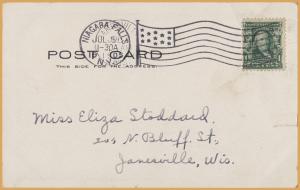 NIAGARA FALLS
JUL 5
11-30A
N.Y.
POST CARD
THIS SIDE FOR THE ADDRESS.
Miss Eliza Stoddard.
N. Bluff. St,
Janesville, Wis.